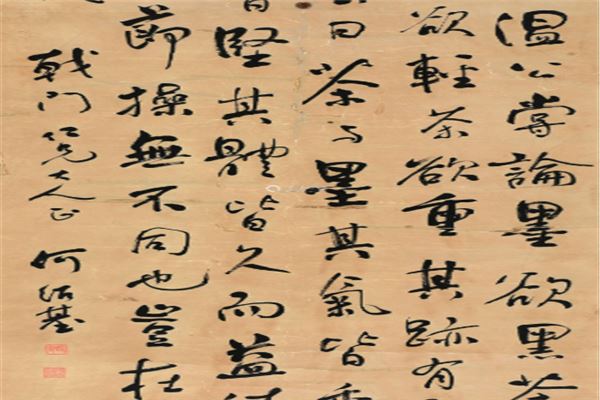 温公嘗論墨欲黑茶
欲輕茶欲重其跡有
曰茶与墨其氣皆香
皆堅其體皆久而益
節操無不同也豈在
戟门仁兄大人正 何紹基